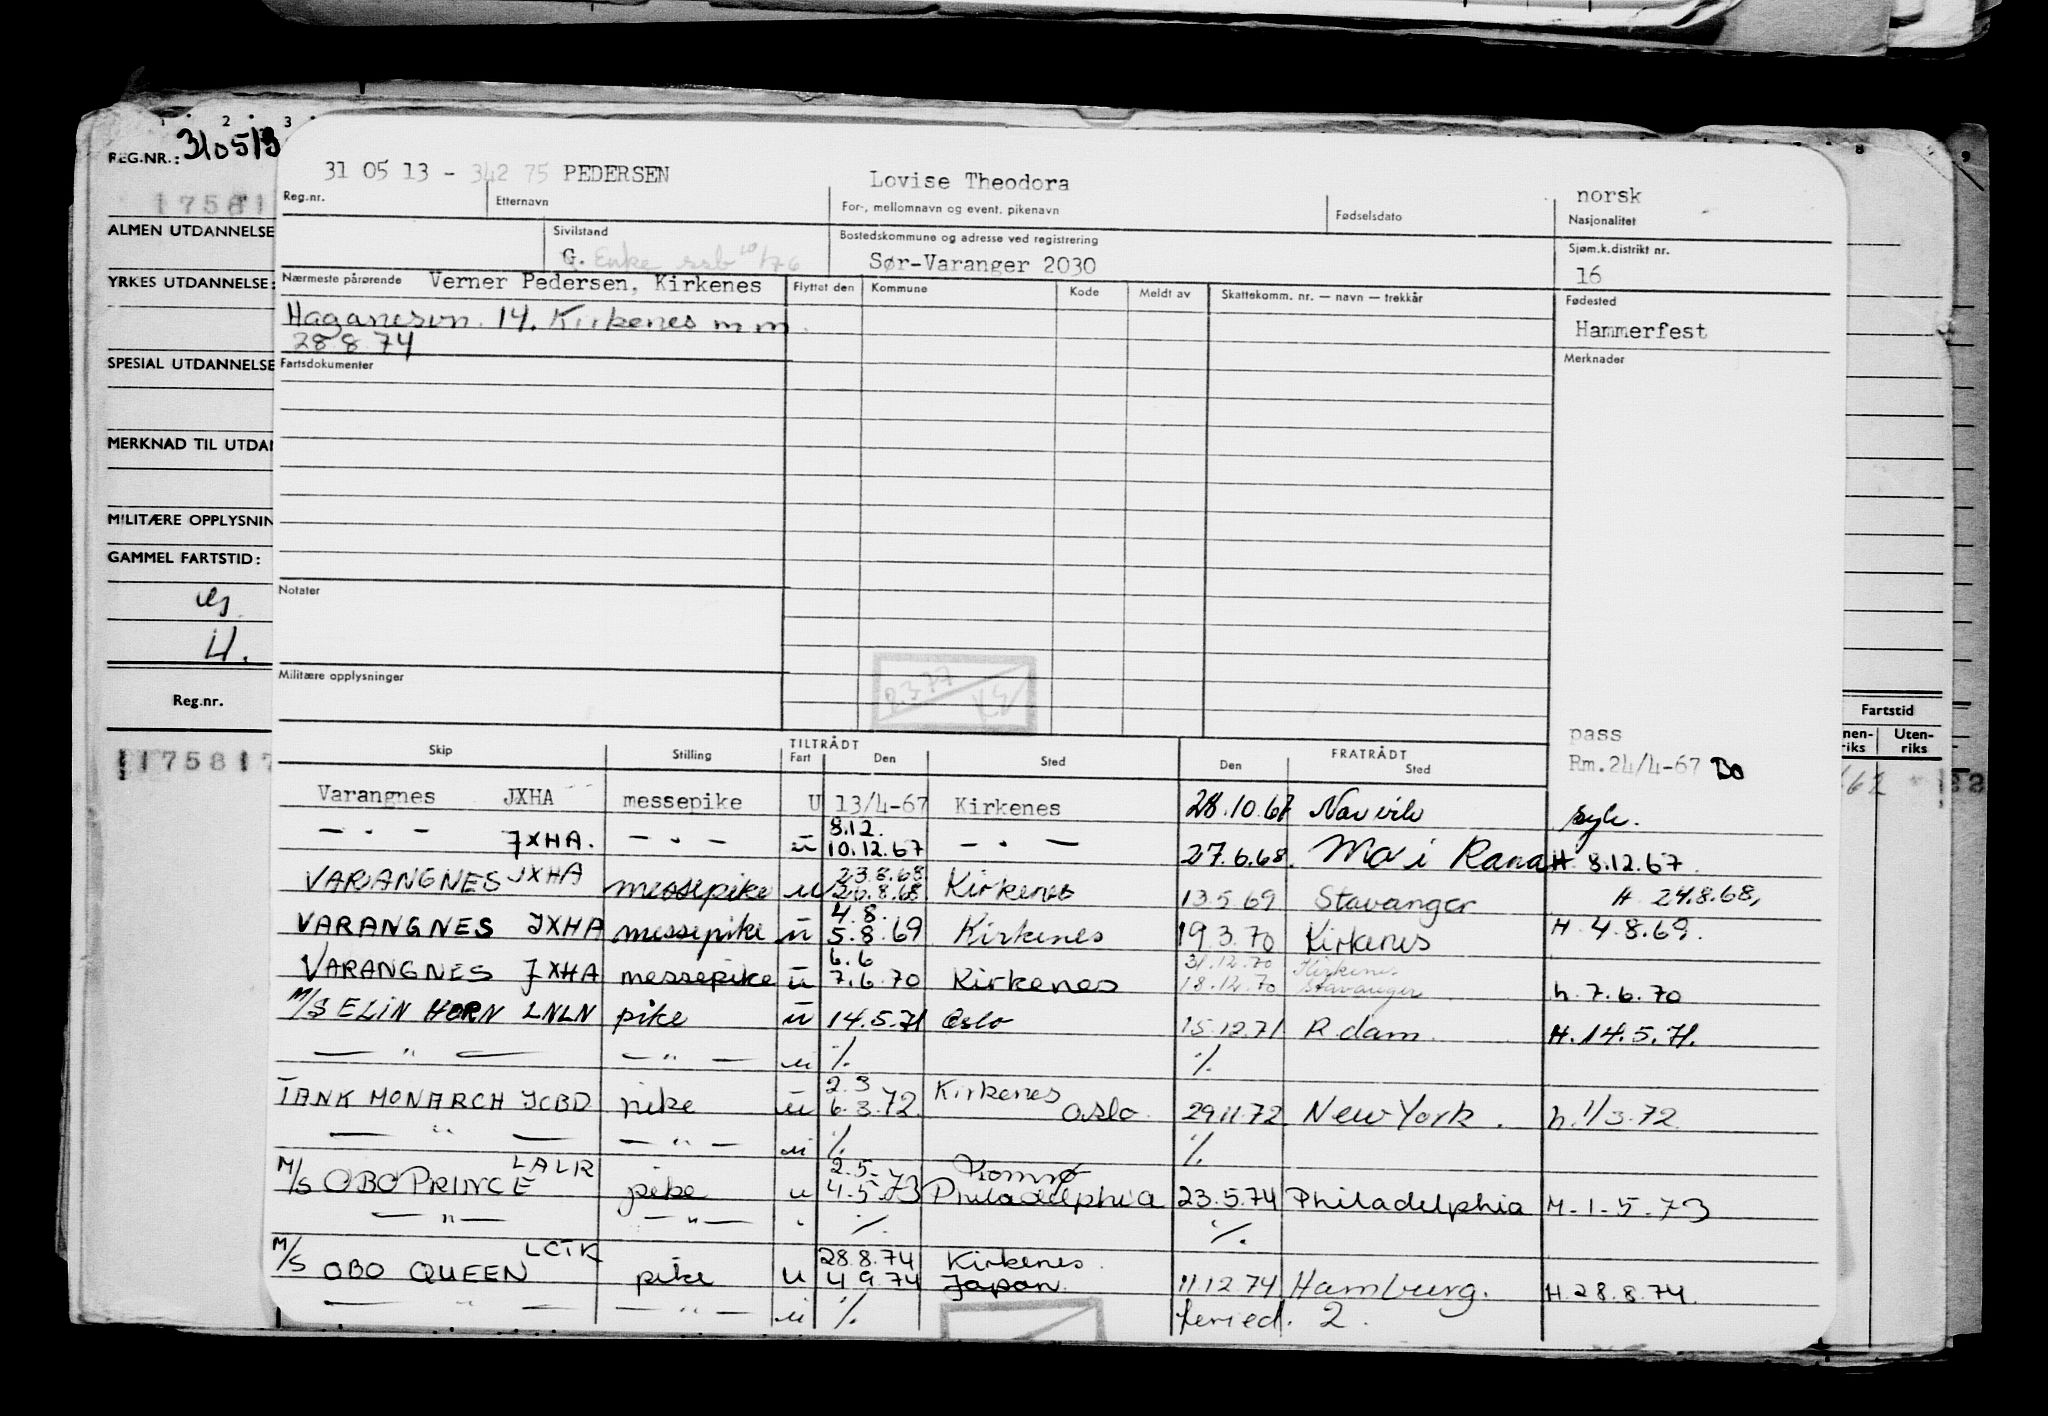 1 2 3 8 9
REG.NR.: 310513
17581
ALMEN UTDANNELSE
YRKES UTDANNELSE:
SPESIAL UTDANNELSE
MERKNAD TIL UTDAN
MILITÆRE OPPLYSNIN
GAMMEL FARTSTID:
U.
Reg.nr.
117581
31 05 13 - 342 75 PEDERSEN Lovise Theodora norsk
Reg.nr. Etternavn For-, mellomnavn og event. pikenavn Fødselsdato Nasjonalitet
Sivilstand Bostedskommune og adresse ved registrering Sjøm.k.distrikt nr.
G. Enke ssb 10/76 Sør-Varanger 2030 16
Nærmeste pårørende Verner Pedersen, Kirkenes Flyttet den Kommune Kode Meldt av Skattekomm. nr. — navn — trekkår Fødested
Haganesvn. 14. Kirkenes m m. Hammerfest
28 8 74
Fartsdokumenter Merknader
Notater
Militære opplysninger
Skip Stilling TILTRÅDT Fart Den Sted FRATRÅDT Den Sted
pass
Rm.24/4-67 Bo
Fartstid
nen-riks Uten-riks
Varangnes JXHA messepike U 13/4-67 Kirkenes 28.10.67 Narvik syk.
— " — JXHA. — " — u 8.12. 10.12.67 — " — 27.6.68. Mo i Rana H. 8.12.67.
VARANGNES JXHA messepike u 23.8.68 26.8.68 Kirkenes 13.5 69 Stavanger H 24.8.68,
VARANGNES JXHA messepike u 4.8. 5.8.69 Kirkenes 19.3.70 Kirkenes H. 4.8.69.
VARANGNES JXHA messepike u 6.6 7.6.70 Kirkenes 31.12.70 18.12.70 Kirkenes Stavanger h.7.6.70
M/S ELIN HORN LNLN pike u 14.5.71 Oslo 15.12.71 R.dam. H.14.5.71.
— " — — " — u ٪ ٪
TANK MONARCH JCBD pike u 2.3 6.3.72 Kirkenes Oslo. 29.11.72 New York. h.1/3.72
— " — — " — u ٪ ٪
M/S OBO PRINCE LALR pike u 2.5. 4.5.73 Philadelphia 23.5.74 Philadelphia M.1.5.73
— " — — " — ٪ ٪
M/S OBO QUEEN LCTK pike u 28.8.74 4.9.74 Kirkenes. Japan. 11.12.74 Hamburg. H.28.8.74.
— " — — " — u ٪ feried. 2.